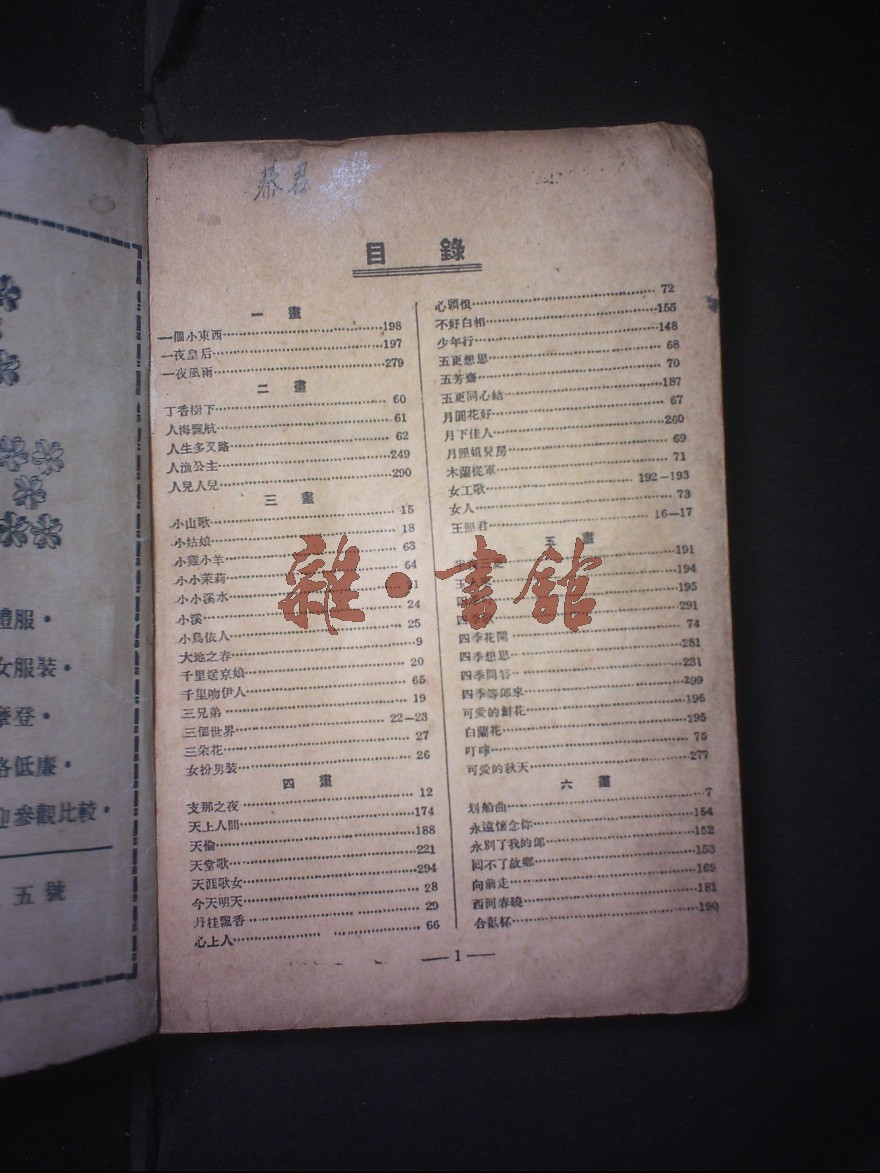 目 錄
一 畫
一個小東西 198
一夜皇后 197
一夜風雨 279
二 畫
丁香樹下 60
人海飄航 61
人生多叉路 62
人漁公主 249
人兒人兒 290
三 畫
小山歌 15
小姑娘 18
小鷄小羊 63
小小茉莉 64
小小溪水 21
小溪 24
小鳥依人 25
大地之春 9
千里送京娘 20
千里吻伊人 65
三兄弟 19
三個世界 22—23
三朵花 27
女扮男裝 26
四 畫
支那之夜 12
天上人間 174
天倫 188
天堂歌 221
天涯歌女 294
今天明天 28
丹桂飄香 29
心上人 66
心頭恨 72
不好白相 155
少年行 148
五更想思 68
五芳齋 70
五更同心結 187
月圓花好 67
月下佳人 260
月照姐兒房 69
木蘭從軍 71
女工歌 192—193
女人 73
王昭君 16—17
五 畫
191
194
195
291
四季花開 74
四季想思 281
四季問答 231
四季等郎來 299
可愛的鮮花 196
白蘭花 295
叮嚀 75
可愛的秋天 277
六 畫
划船曲 7
永遠懷念你 154
永別了我的郎 152
回不了故鄉 153
向前走 169
西河春曉 181
合歡杯 190
— 1 —
雜·書館
體服·
女服裝·
摩登·
格低廉·
迎參觀比較·
五號